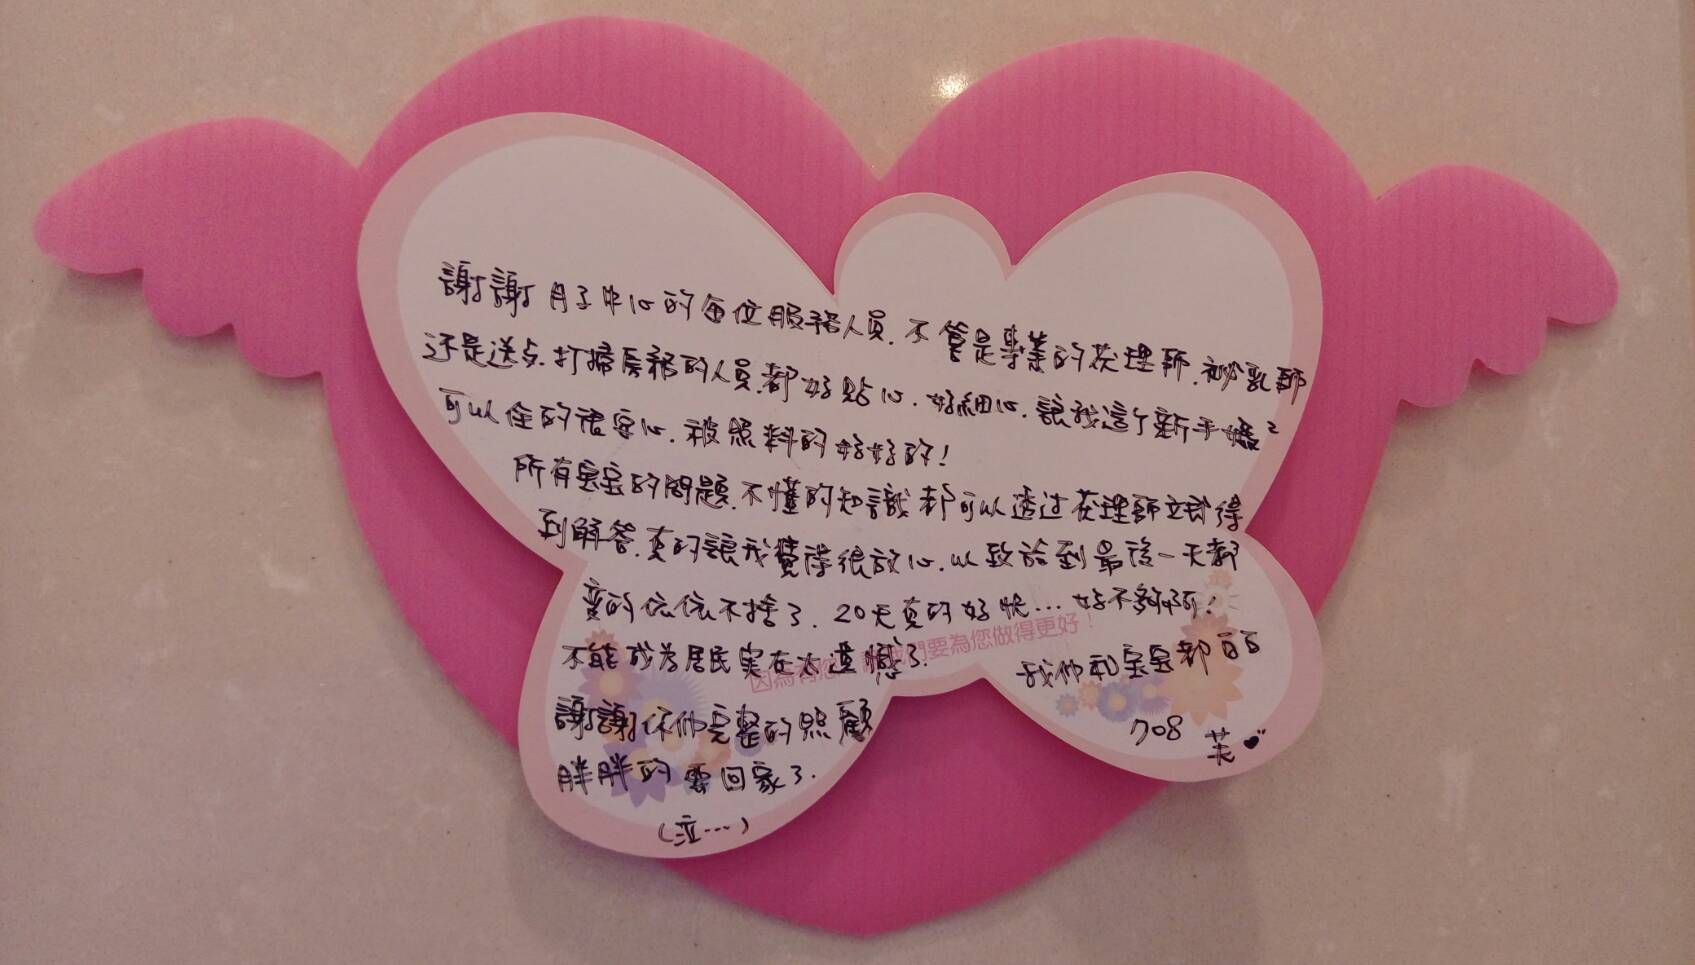 謝謝月子中心的每位服務人員.不管是專業的护理師.泌乳師
还是送点.打掃房務的人員.都好貼心.好細心.讓我這个新手媽ㄟ
可以住的很安心.被照料的好好的!
所有宝宝的問題.不懂的知識都可以透过护理師立即得
到解答.真的讓我覺得很放心.以致於到最後一天都
變的依依不捨了.20天真的好快...好不夠啊!
不能成為居民实在太遺憾了.
因為有您,我們要為您做得更好!
謝謝你们完整的照顧
我们和宝宝都白白
胖胖的要回家了.
(泣...)
708